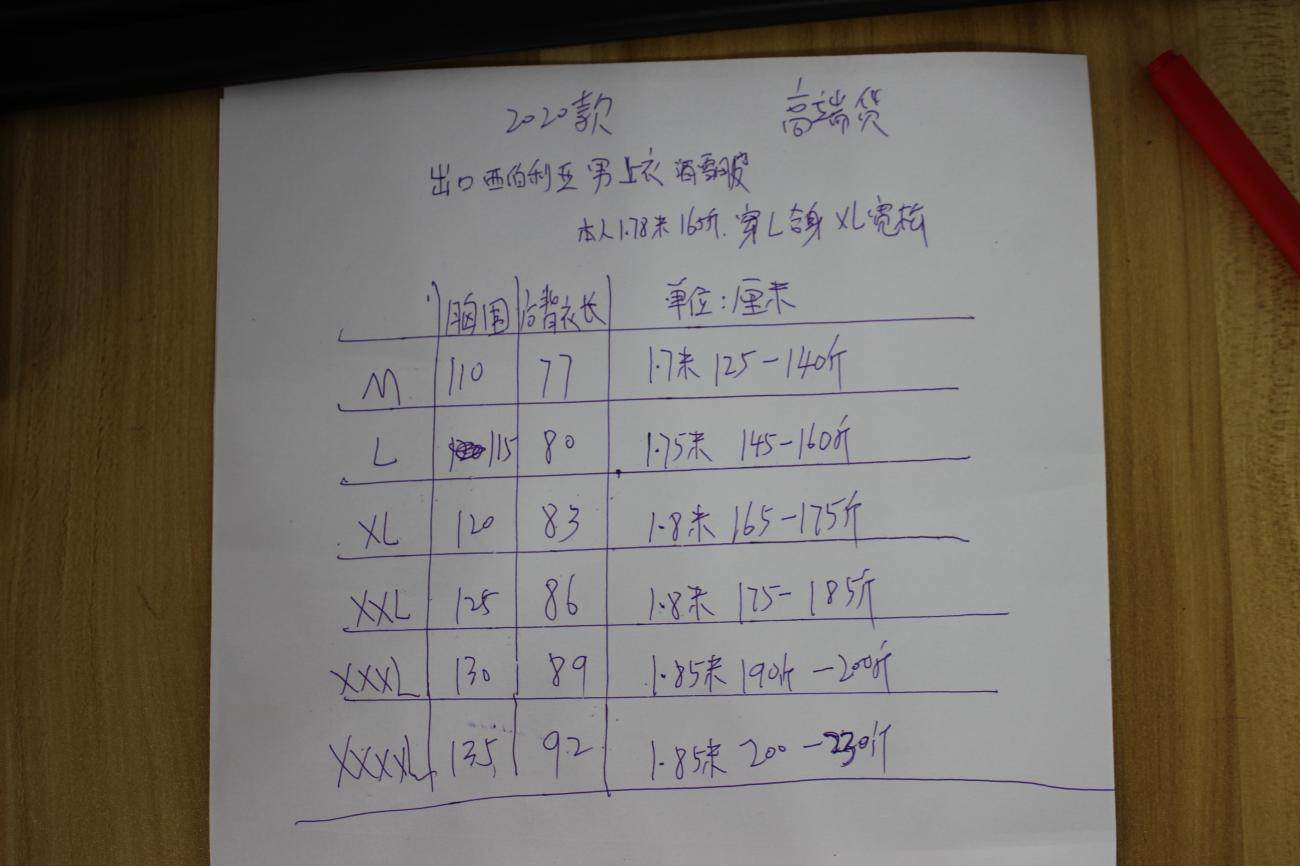 2020款 高端货
出口西伯利亚男上衣滑雪服
本人1.78米165斤.穿L合身 XL宽松
胸围 后背衣长 单位:厘米
M 110 77 1.7米 125-140斤
L 115 80 1.75米 145-160斤
XL 120 83 1.8米 165-175斤
XXL 125 86 1.8米 175-185斤
XXXL 130 89 1.85米 190斤-200斤
XXXXL 135 92 1.85米 200-230斤